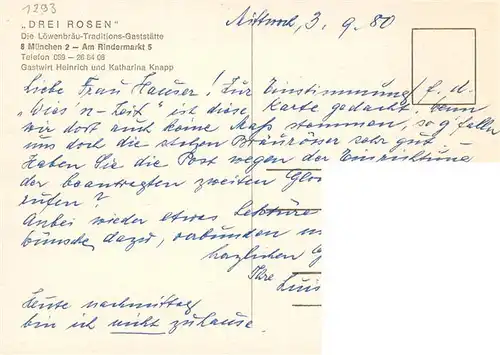 1293
„DREI ROSEN“
Die Löwenbräu-Traditions-Gaststätte
8 München 2 — Am Rindermarkt 5
Telefon 089 – 26 54 08
Gastwirt Heinrich und Katharina Knapp
Mittwoch, 3. 9. 80
Liebe Frau Hauser! Zur Einstimmung f. d.
„Wies'n-Zeit“ ist diese Karte gedacht. Wenn
wir dort auch keine Maß stemmen, so g'fallen
uns doch die stolzen Brauröser sehr gut.
Haben Sie die Post wegen der Einrichtung
der beantragten zweiten
rufen?
Anbei wieder etwas Lektüre
Wünsche dazu, verbunden
herzlichen
Ihre
Heute nachmittag
bin ich nicht zuhause.